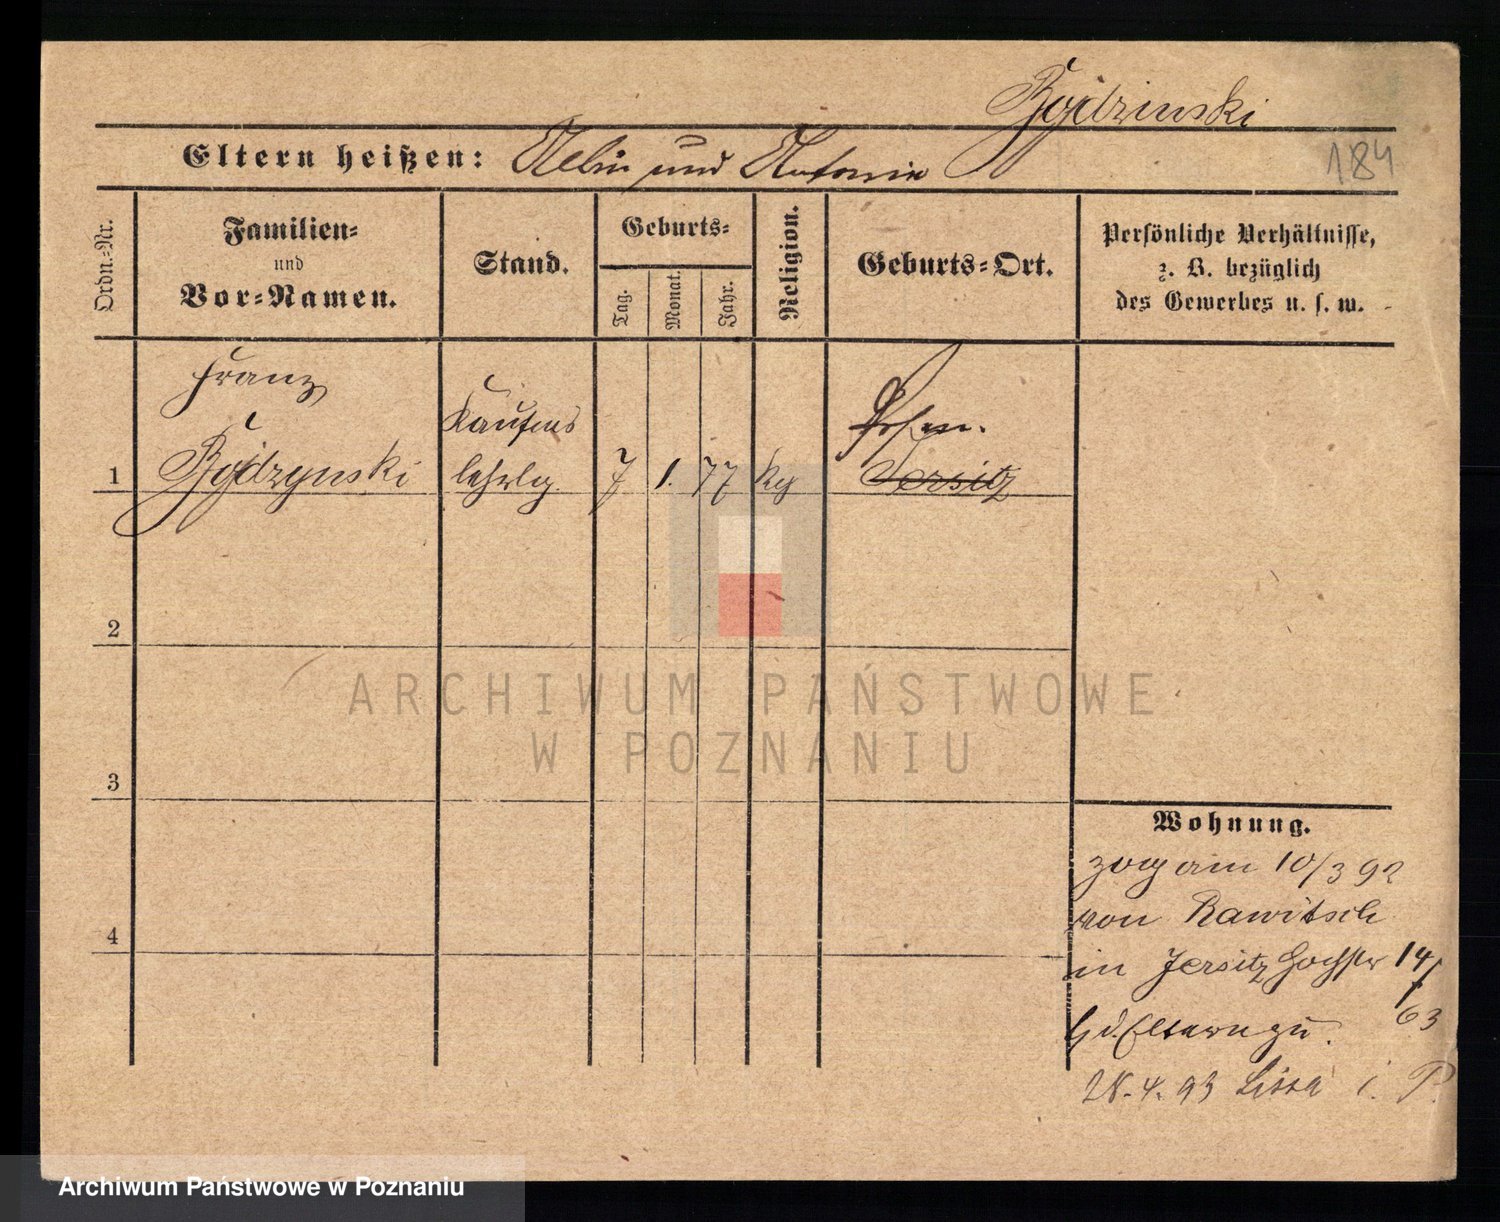 Bojdzinski
184
Eltern heißen: Albin und Antonia
Ordn.-Nr.
Familien-
und
Vor-Namen.
Stand.
Geburts-
Tag.
Monat.
Jahr.
Religion.
Geburts-Ort.
Persönliche Verhältnisse,
z. B. bezüglich
des Gewerbes u. s. w.
Franz
Kaufms
Posen.
1
lehrlg. 7 1. 77 Kg Jersitz
2
ARCHIWUM PAŃSTWOWE
W POZNANIU
3
Wohnung.
zog am 10/3 92
von Rawitsch
4
in Jersitz Hochstr 14/
63
Eltern zu.
28.4.93 Lissa i. P.
Archiwum Państwowe w Poznaniu